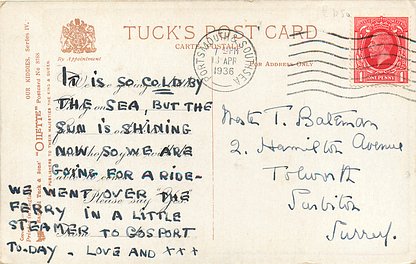 TUCK'S POST CARD
CARTE POSTALE
By Appointment
FOR ADDRESS ONLY
PORTSMOUTH & SOUTHSEA
PM
APR
1936
ONE PENNY
IT IS SO COLD BY
THE SEA, BUT THE
SUN IS SHINING
NOW SO WE ARE
GOING FOR A RIDE-
WE WENT OVER THE
FERRY IN A LITTLE
STEAMER TO GOSPORT
TO-DAY. LOVE AND +++
T. Bateman
2. Hamilton Avenue
Tolworth
Surbiton
Surrey.
"OILETTE"
OUR HOUSES. Series IV.